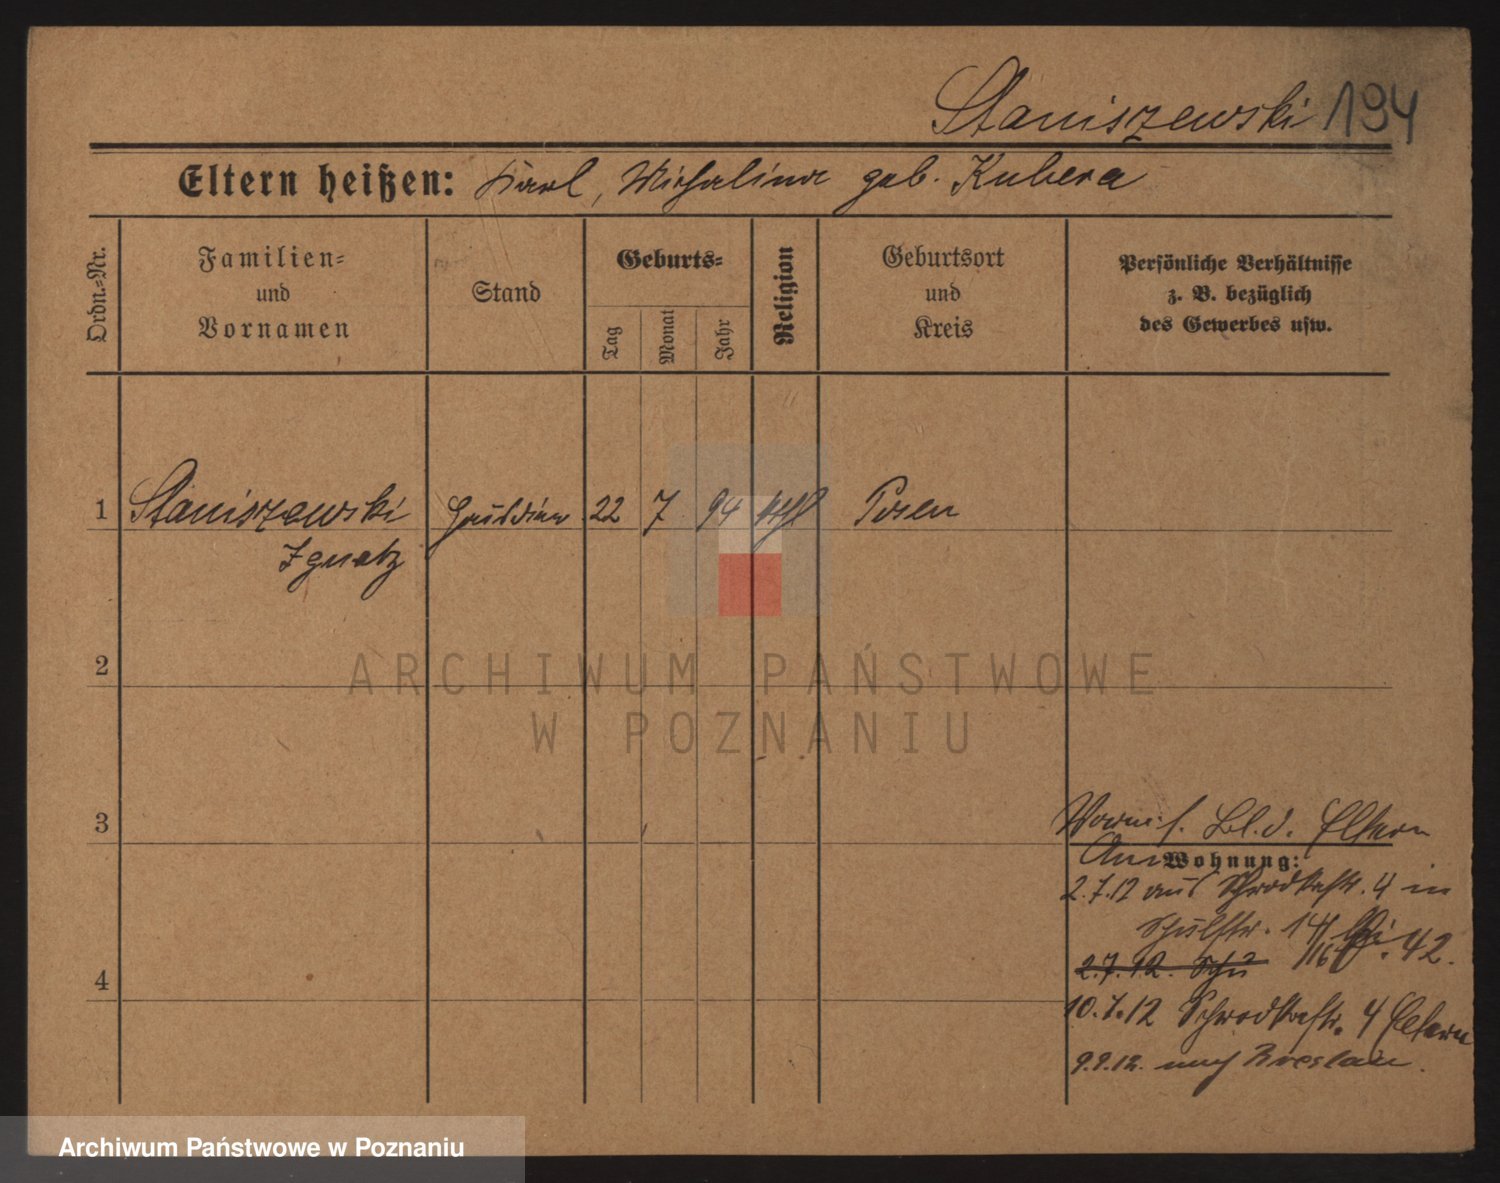 Staniszewski 194
Eltern heißen: Karl, Michalina geb. Kubera
Ordn.-Nr.
Familien-
und
Vornamen
Stand
Geburts-
Tag
Monat
Jahr
Religion
Geburtsort
und
Kreis
Persönliche Verhältnisse
z. B. bezüglich
des Gewerbes usw.
1 Staniszewski Hausdiener 22 7 94 kath Posen
Ignatz
2
ARCHIWUM PAŃSTWOWE
W POZNANIU
3
Vorm. s. Bl. d. Eltern
Wohnung:
2.7.12 aus Schrodkastr. 4 in
Schulstr. 14 42.
4
2.7.12. Schu
10.7.12 Schrodkastr. 4 Eltern
9.9.12. nach Breslau.
Archiwum Państwowe w Poznaniu